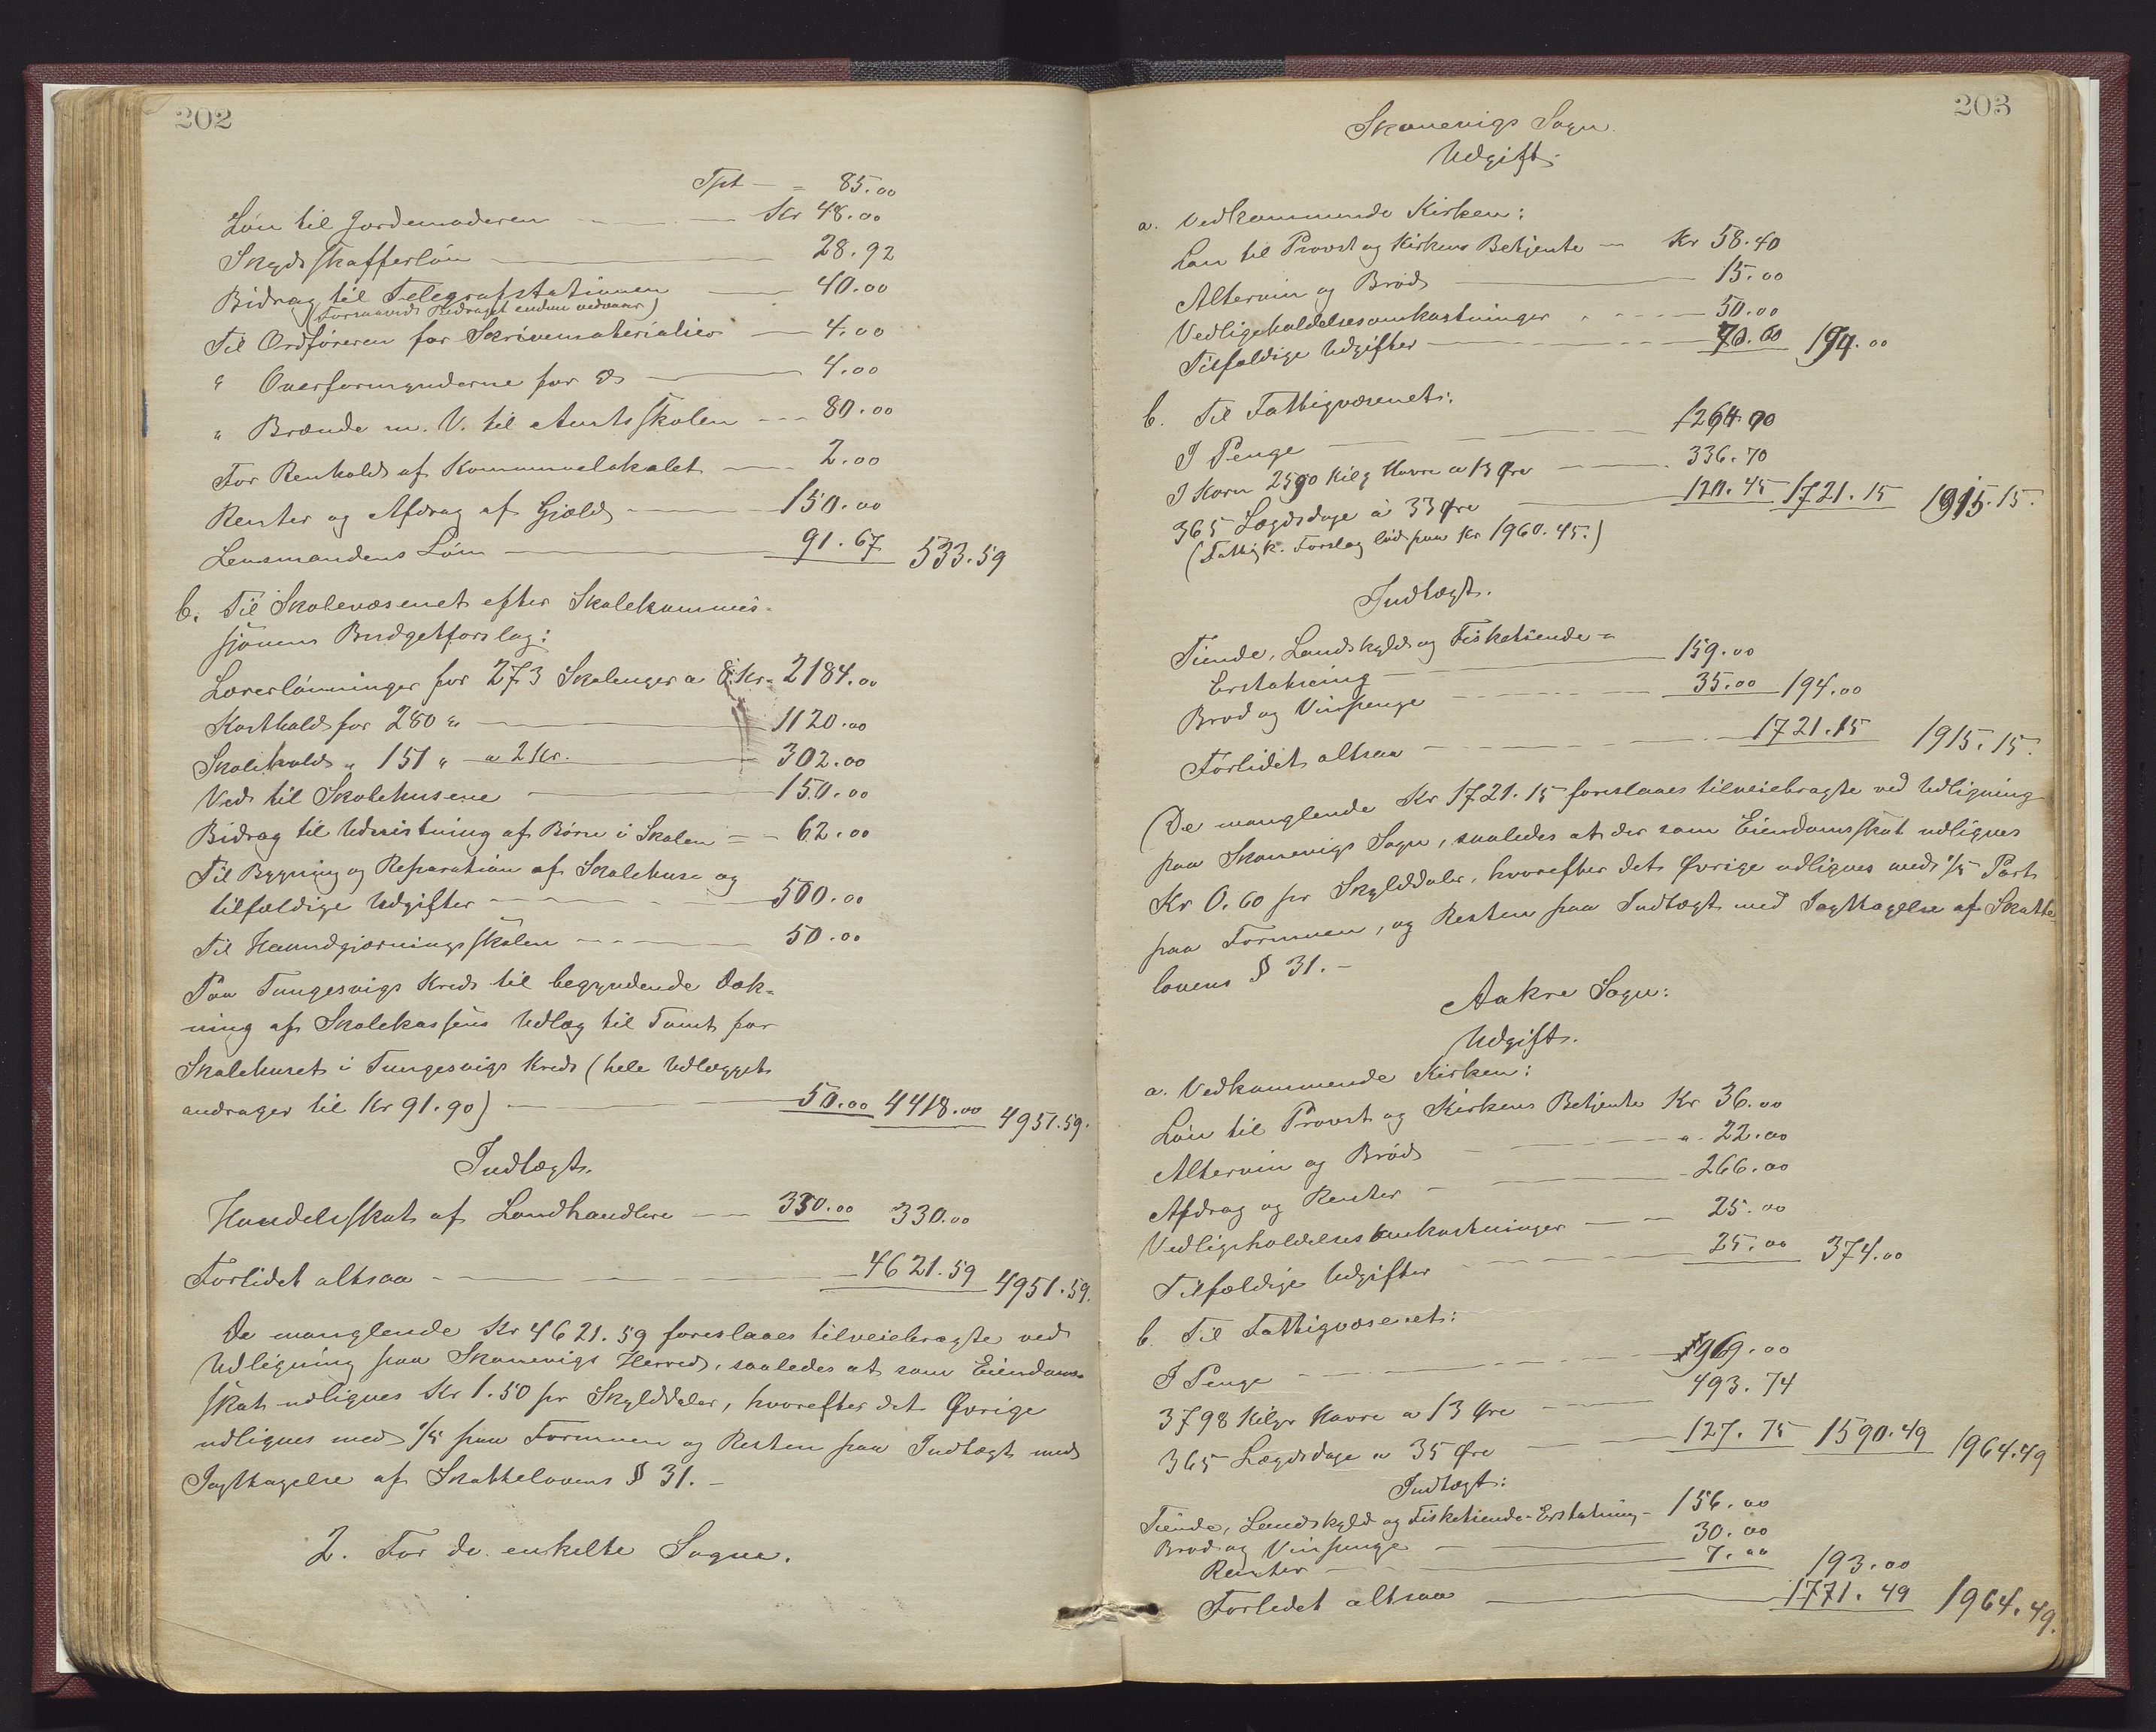 202
Tpt - = 85.00
Løn til Jordemoderen - Kr 48.00
Skydsskafferløn 28.92
Bidrag til Telegrafstationen 40.00
(forsaavidt Bidraget endnu vedvarer)
Til Ordføreren for Skrivematerialier 4.00
" Overformynderne for do 4.00
" Brænde m. V. til Amtsskolen 80.00
For Renhold af Kommunelokalet 2.00
Renter og Afdrag af Gjæld 150.00
Lensmandens Løn 91.67 533.59
b. Til Skolevæsenet efter Skolekommis-
sjonens Budgetforslag:
Lærerlønninger for 273 Skoleuger a 8 Kr = 2184.00
Kosthold for 280 " 1120.00
Skolehold " 151 " a 2 Kr. 302.00
Ved til Skolehusene 150.00
Bidrag til Undervisning af Børn i Skolen = - 62.00
Til Bygning og Reparation af Skolehuse og
tilfældige Udgifter 500.00
Til Haandgjærningsskolen 50.00
Paa Tungesvigs Kreds til begyndende Dæk-
ning af Skolekassens Udlæg til Tomt for
Skolehuset i Tungesvigs Kreds (hele Udlægget
andrager til Kr 91.90) 50.00 4418.00 4951.59.
Indtægt.
Handelsskat af Landhandlere 330.00 330.00
Forlidet altsaa 4621.59 4951.59.
De manglende Kr 4621.59 foreslaaes tilveiebragte ved
Udligning paa Skonevigs Herred, saaledes at som Eiendoms-
skat udlignes Kr 1.50 pr Skylddaler, hvorefter det Øvrige
udlignes med 1/5 paa Formuen og Resten paa Indtægt med
Iagttagelse af Skattelovens § 31.-
2. For de enkelte Sogne.
203
Skonevigs Sogn.
Udgift.
a. Vedkommende Kirken:
Løn til Provst og Kirkens Betjente - Kr 58.40
Altervin og Brød 15.00
Vedligeholdelsesomkostninger 50.00
Tilfældige Udgifter 70.60 194.00
b. Til Fattigvæsenet:
I Penge 1264.00
I Korn 2590 Kilg Havre a 13 Øre 336.70
365 Lægdsdage a 33 Øre 120.45 1721.15 1915.15.
(Fattigk. Forslag lød paa Kr 1960.45.)
Indtægt.
Tiende, Landskyld og Fisketiende-
Erstatning 159.00
Brød og Vinpenge 35.00 194.00
Forlidet altsaa 1721.15 1915.15.
(De manglende Kr 1721.15 foreslaaes tilveiebragte ved Udligning
paa Skonevigs Sogn, saaledes at der som Eiendomsskat udlignes
Kr 0.60 pr Skylddaler, hvorefter det Øvrige udlignes med 1/5 Part
paa Formuen, og Resten paa Indtægt med Iagttagelse af Skatte
lovens § 31.-
Aakre Sogn:
Udgift.
a. Vedkommende Kirken:
Løn til Provst og Kirkens Betjente Kr 36.00
Altervin og Brød " 22.00
Afdrag og Renter 266.00
Vedligeholdelsesomkostninger 25.00
Tilfældige Udgifter 25.00 374.00
b. Til Fattigvæsenet:
I Penge 969.00
3798 Kilgr Havre a 13 Øre 493.74
365 Lægdsdage a 35 Øre 127.75 1590.49 1964.49
Indtægt:
Tiende, Landskyld og Fisketiende-Erstatning - 156.00
Brød og Vinpenge 30.00
Renter 7.00 193.00
Forlidet altsaa 1771.49 1964.49.